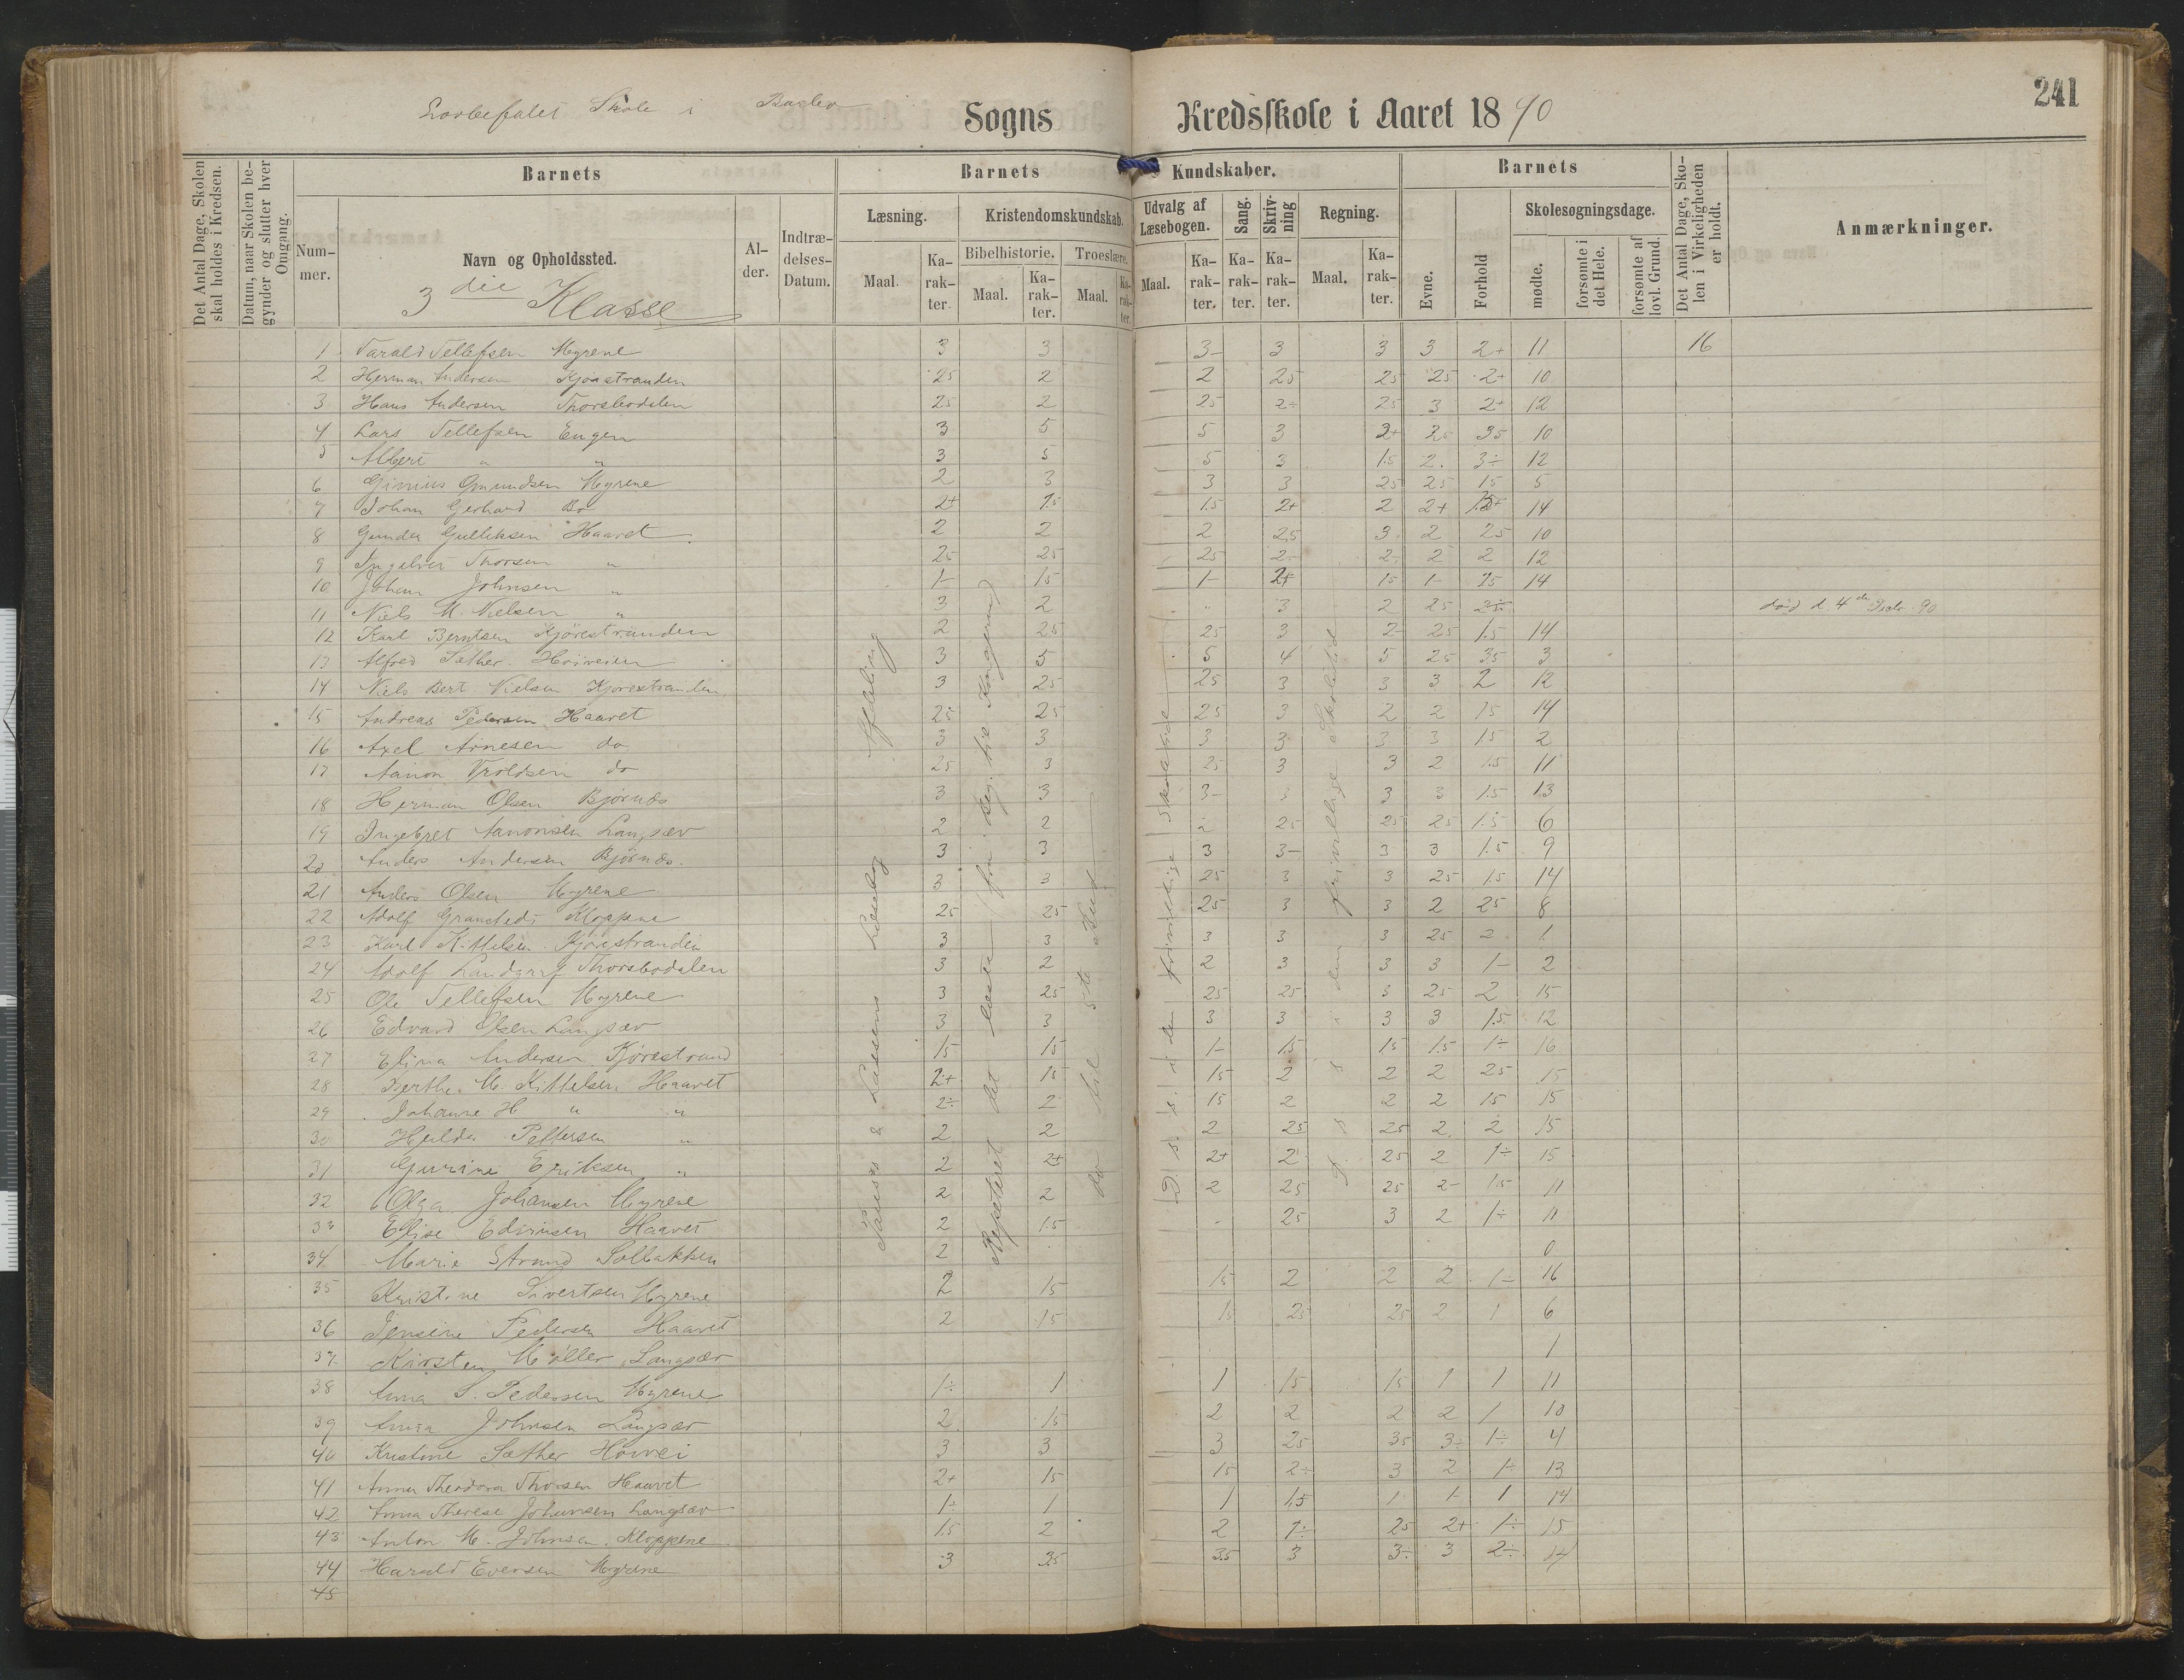 241
Skole i
Sogns Kredsskole i Aaret 1890
Det Antal Dage, Skolen skal holdes i Kredsen.
Datum, naar Skolen begynder og slutter hver Omgang.
Barnets
Nummer.
Navn og Opholdssted.
3 die Klasse
Alder.
Indtrædelses-Datum.
Barnets Kundskaber.
Læsning. Kristendomskundskab. Udvalg af Læsebogen. Sang. Skrivning Regning.
Bibelhistorie. Troeslære.
Maal. Karakter. Maal. Karakter. Maal. Karakter. Maal. Karakter. Karakter. Karakter. Maal. Karakter.
Barnets
Evne. Forhold Skolesøgningsdage.
mødte. forsømte i det Hele. forsømte af lovl. Grund.
Det Antal Dage, Skolen i Virkeligheden er holdt.
Anmærkninger.
1 Tarald Tellefsen Myrene 3 3 3- 3 3 3 2+ 11 16
2 Herman Andersen Kjørestranden 25 2 2 25 25 25 2+ 10
3 Hans Andersen Thorsbodalen 25 2 25 2÷ 25 3 2+ 12
4 Lars Tellefsen Engen 3 5 5 3 3+ 35 10
5 Albert " " 3 5 5 3 1.5 2. 3÷ 12
6 Gmundsen Myrene 2 3 3 3 25 25 15 5
7 Johan Gerhard Bo 2+ 1.5 1.5 2+ 2 2+ 14
8 Gunder Gulliksen Haavet 2 2 2 2,5 3 2 25 10
9 Thorsen " 25 25 25 2- 2 2 2 12
10 Johan Johnsen " 1- 15 1- 2+ 15 1- 14
11 Niels M. Nielsen " 3 2 " 3 2 25 død d 4de 90
12 Karl Berntsen Kjørestranden 2 25 25 3 2- 25 1.5 14
13 Alfred Sæther. Hoiveien 3 5 5 4 5 25 35 3
14 Niels Bert. Nielsen Kjørestranden 3 25 25 3 3 3 2 12
15 Andreas Pedersen Haavet 25 25 25 3 2 2 15 14
16 Axel Arnesen do 3 3 3 3 3 3 15 2
17 Aanon do 25 3 25 3 3 2 1.5 11
18 Herman Olsen Bjørnæs 3 3 3- 3 3 3 1.5 13
19 Ingebret Aanonsen Langsæv 2 2 2 25 25 25 1.5 6
20 Anders Andersen Bjørnæs. 3 3 3 3- 3 3 1.5 9
21 Anders Olsen Myrene 3 3 25 3 3 25 15 14
22 Adolf Kloppene 25 25 25 3 3 2 25 8
23 Karl Kittelsen Kjørestranden 3 3 3 3 3 25 2 1
24 Adolf Thorsbodalen 3 2 2 3 3 3 1- 2
25 Ole Tellefsen Myrene 3 25 25 25 3 25 2 15
26 Edvard Olsen Langsæv 3 3 3 3 3 3 1.5 12
27 Elina Andersen Kjørestrand 15 15 1- 1.5 15 1.5 1÷ 16
28 Berthe M. Kittelsen Haavet 2+ 15 15 2 2 2 25 15
29 Johanne H " " 2÷ 2 15 2 2 2 15 15
30 Hulda Pettersen " 2 2 2 25 25 2 2 15
31 Eriksen " 2 2+ 2+ 2 25 2 1÷ 15
32 Olga Johansen Myrene 2 2 2 25 25 2- 15 11
33 Elise Haavet 2 1.5 - 25 3 2 1÷ 11
34 Marie Strand Solbakken 2 0
35 Kristine Sivertsen Myrene 2 15 15 2 2 2 1- 16
36 Jensine Pedersen Haavet 2 15 15 25 25 2 1 6
37 Kirsten Møller Langsæv 1
38 Anna S. Pedersen Myrene 1÷ 1 1 15 15 1 1 11
39 Anna Johnsen Langsæv 2 15 2 2 2 2 1 10
40 Kristine Sæther Hoivei 3 3 3 25 35 3÷ 1÷ 4
41 Anna Theodora Thorsen Haavet 2+ 15 15 2÷ 3 2 1÷ 13
42 Anna Therese Johansen Langsæv 1÷ 1 1 1,5 1 1- 1 14
43 Anton M. Johnsen. Kloppene 1.5 2 2 1÷ 25 2+ 1÷ 15
44 Harald Evensen Myrene 3 35 35 3 3÷ 3 2÷ 14
45
Pauses & Læsebog
Repeteret det læste
do til 5te Bud
D s s. i den frivillige Skoletid
D s s i den frivillige Skoletid